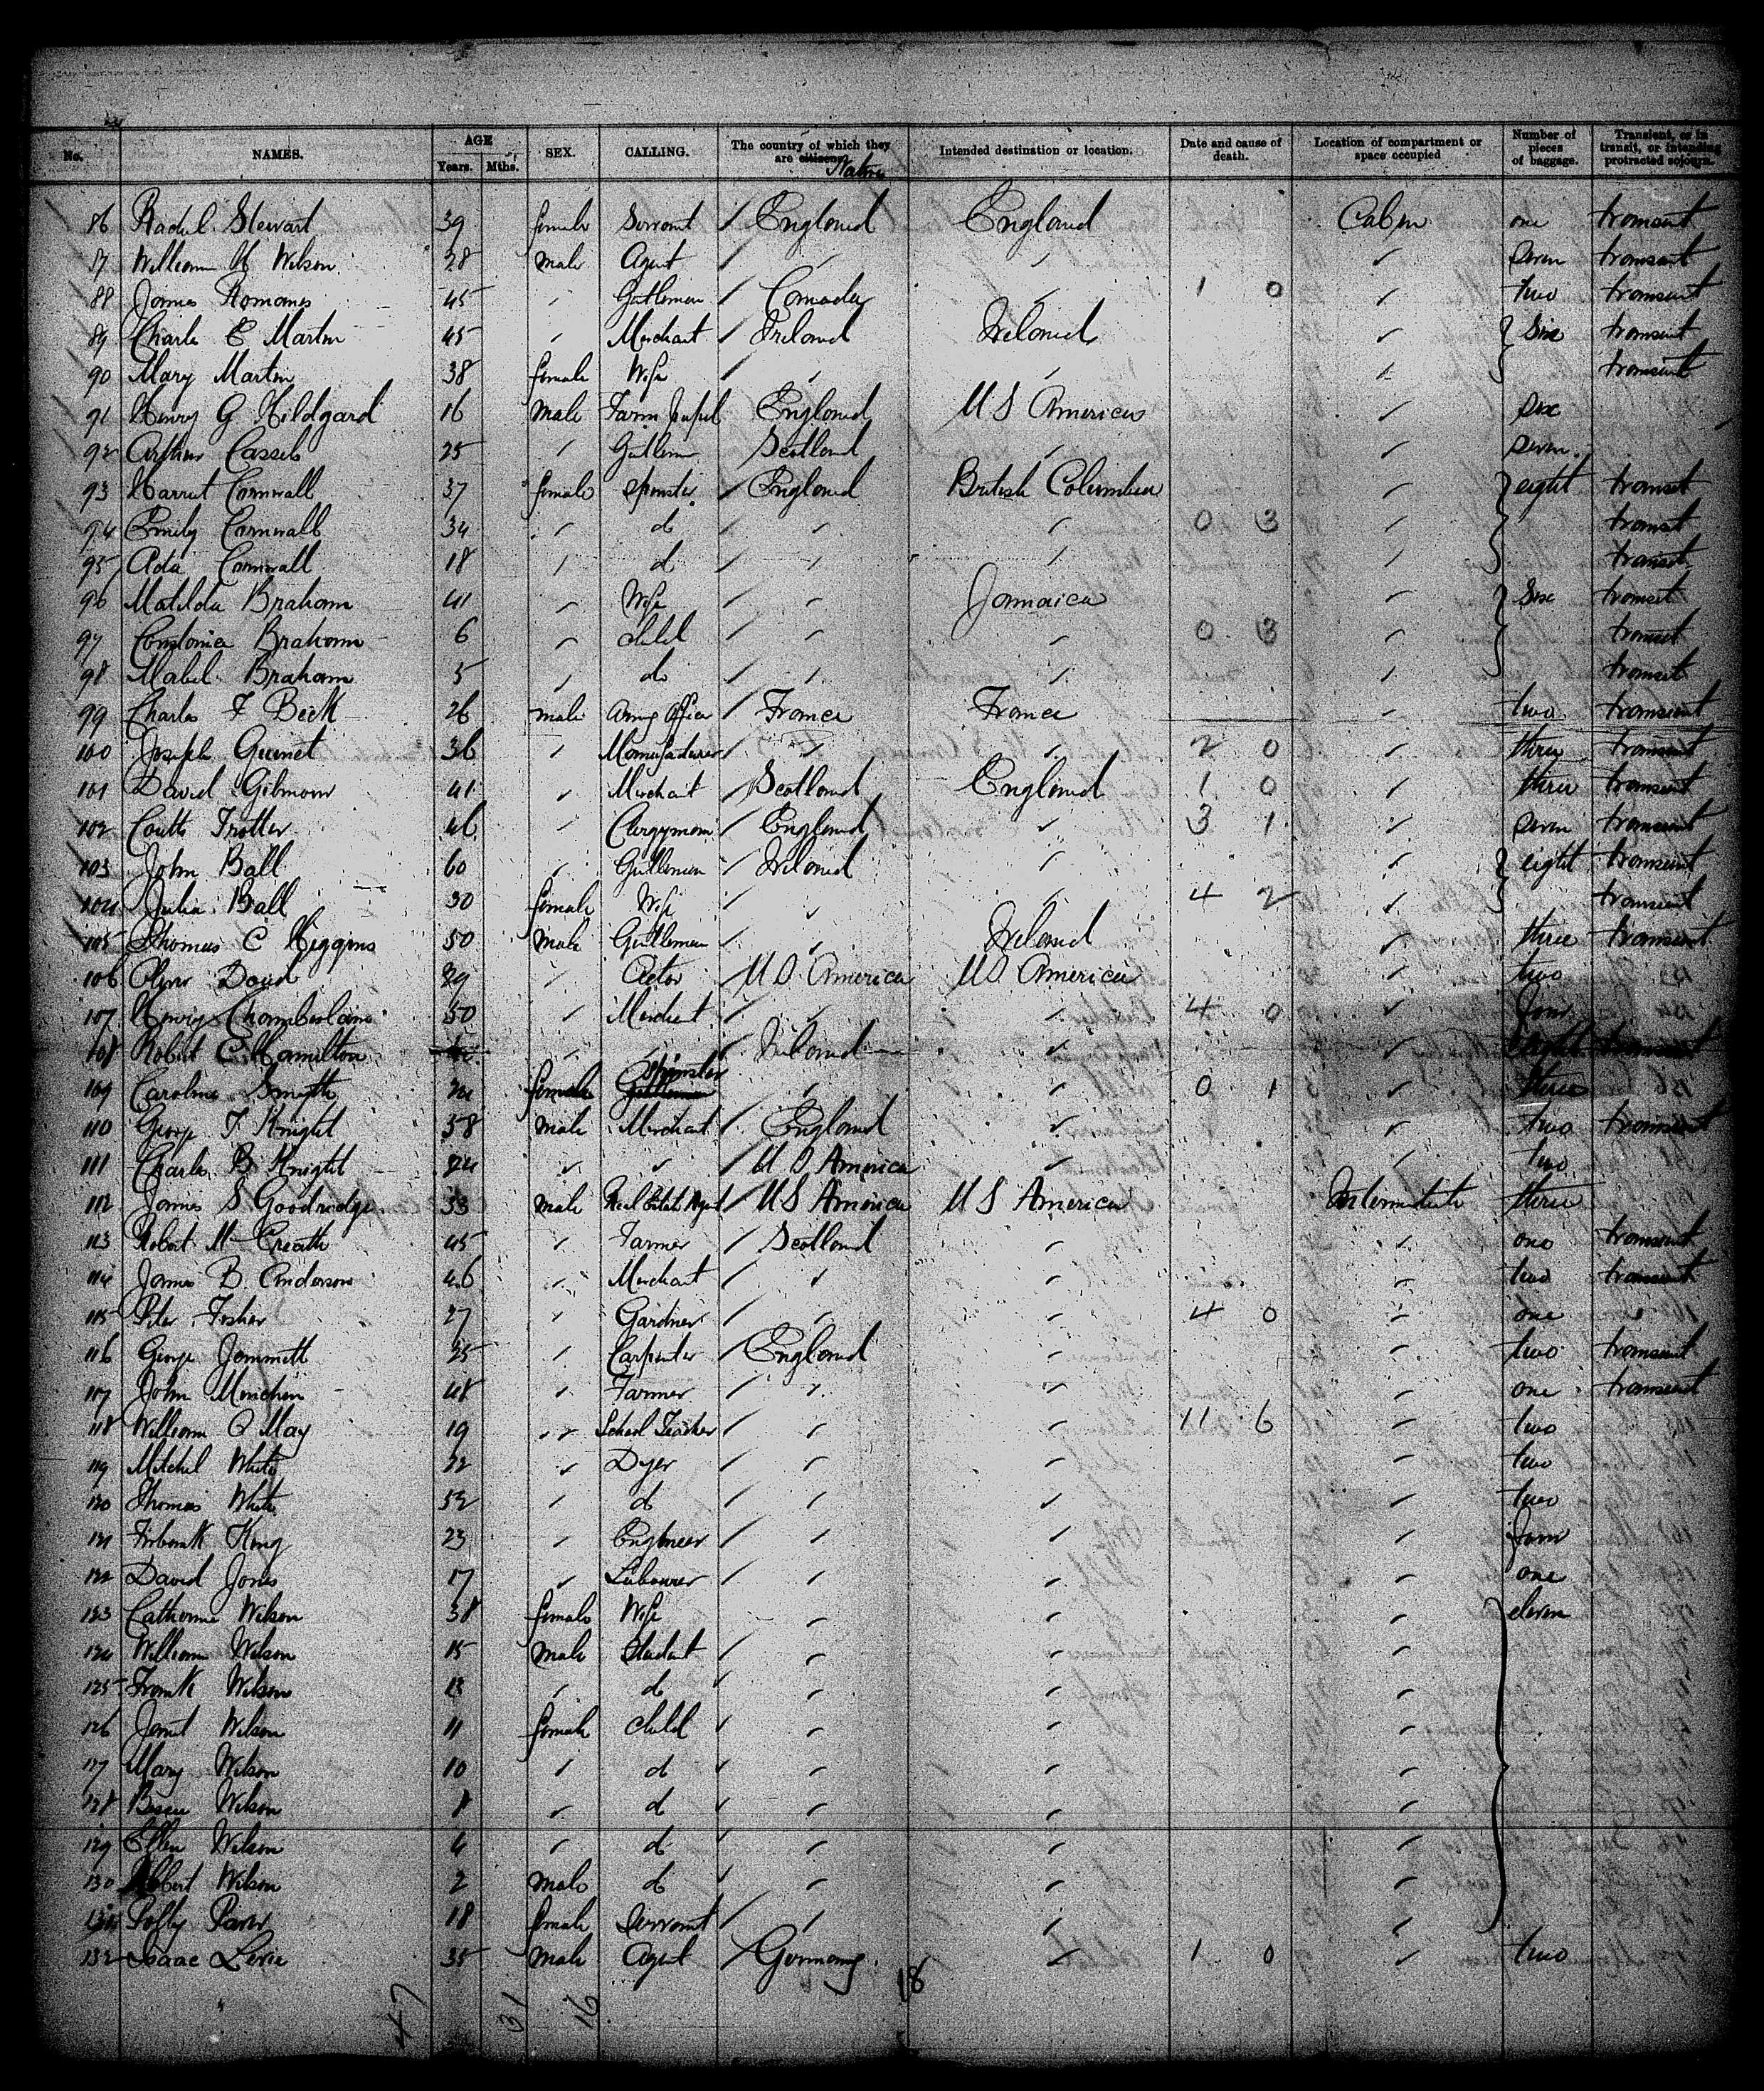 No. NAMES. AGE Years. Mths. SEX. CALLING. The country of which they are citizens Natives Intended destination or location. Date and cause of death. Location of compartment or space occupied Number of pieces of baggage. Transient, or in transit, or intending protracted sojourn.
86 Rachel Stewart 39 female Servant / England England Cabin one transient
87 William H Wilson 38 male Agent / seven transient
88 James Romanes 45 Gentleman / Canada 1 0 two transient
89 Charles E Martin 45 Merchant / Ireland Ireland six transient
90 Mary Martin 38 female Wife / transient
91 Henry G Hildgard 16 male Farm England U S America six
92 Arthur Cassels 25 Gentleman Scotland seven
93 Harriet Cornwall 37 female Spinster / England British Columbia eight transient
94 Emily Cornwall 34 do / 0 3 transient
95 Ada Cornwall 18 do / transient
96 Matilda Braham 41 Wife / Jamaica six transient
97 Constance Braham 6 child / 0 3 transient
98 Mabel Braham 5 do / transient
99 Charles F Beck 26 male Army Officer / France France two transient
100 Joseph Guinet 36 Manufacturer / 2 0 three transient
101 David Gilmour 41 Merchant / Scotland England 1 0 three transient
102 Coutts Trotter 46 Clergyman / England 3 1 seven transient
103 John Ball 60 Gentleman / Ireland eight transient
104 Julia Ball 30 female Wife / 4 2 transient
105 Thomas C Higgins 50 male Gentleman / Ireland three transient
106 Oliver Doud 39 Actor / U S America U S America two
107 Henry Chamberlain 50 Merchant / 4 0 four
108 Robert C Hamilton / Ireland eight transient
109 Caroline Smyth 24 female Spinster / 0 1 three
110 George F Knight 58 male Merchant / England two transient
111 Charles B Knight 24 / U S America two
112 James S Goodridge 33 male Real Estate Agent / U S America U S America Intermediate three
113 Robert McCreath 45 Farmer / Scotland one transient
114 James B Anderson 46 Merchant / two transient
115 Peter Fisher 27 Gardner / 4 0 one
116 George Jemmett 25 Carpenter / England two transient
117 John Minchin 48 Farmer / one transient
118 William O May 19 School Teacher / 11 6 two
119 Mitchel White 22 Dyer / two
120 Thomas White 52 do / two
121 Firbank King 23 Engineer / four
122 David Jones 17 Labourer / one
123 Catherine Wilson 38 female Wife eleven
124 William Wilson 15 male Student /
125 Frank Wilson 13 do
126 Janet Wilson 11 female child
127 Mary Wilson 10 do
128 Bessie Wilson 8 do
129 Ellen Wilson 4 do
130 Robert Wilson 2 male do
131 Polly 18 female Servant /
132 Isaac Levie 35 male Agent / Germany 1 0 two
47 31 16 18